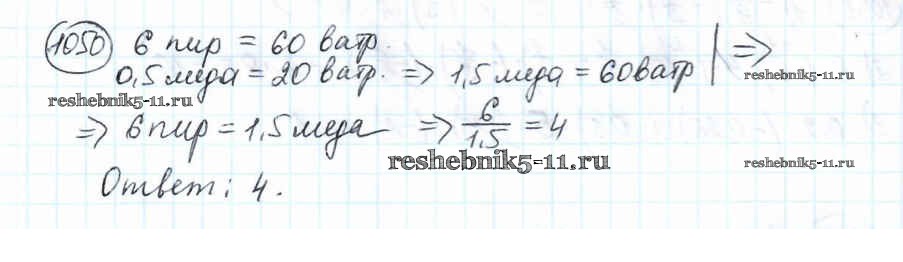 1050 6 пир = 60 ватр.
0,5 меда = 20 ватр. => 1,5 меда = 60 ватр | =>
reshebnik5-11.ru
reshebnik5-11.ru
=> 6 пир = 1,5 меда => 6/1,5 = 4
reshebnik5-11.ru
reshebnik5-11.ru
Ответ: 4.